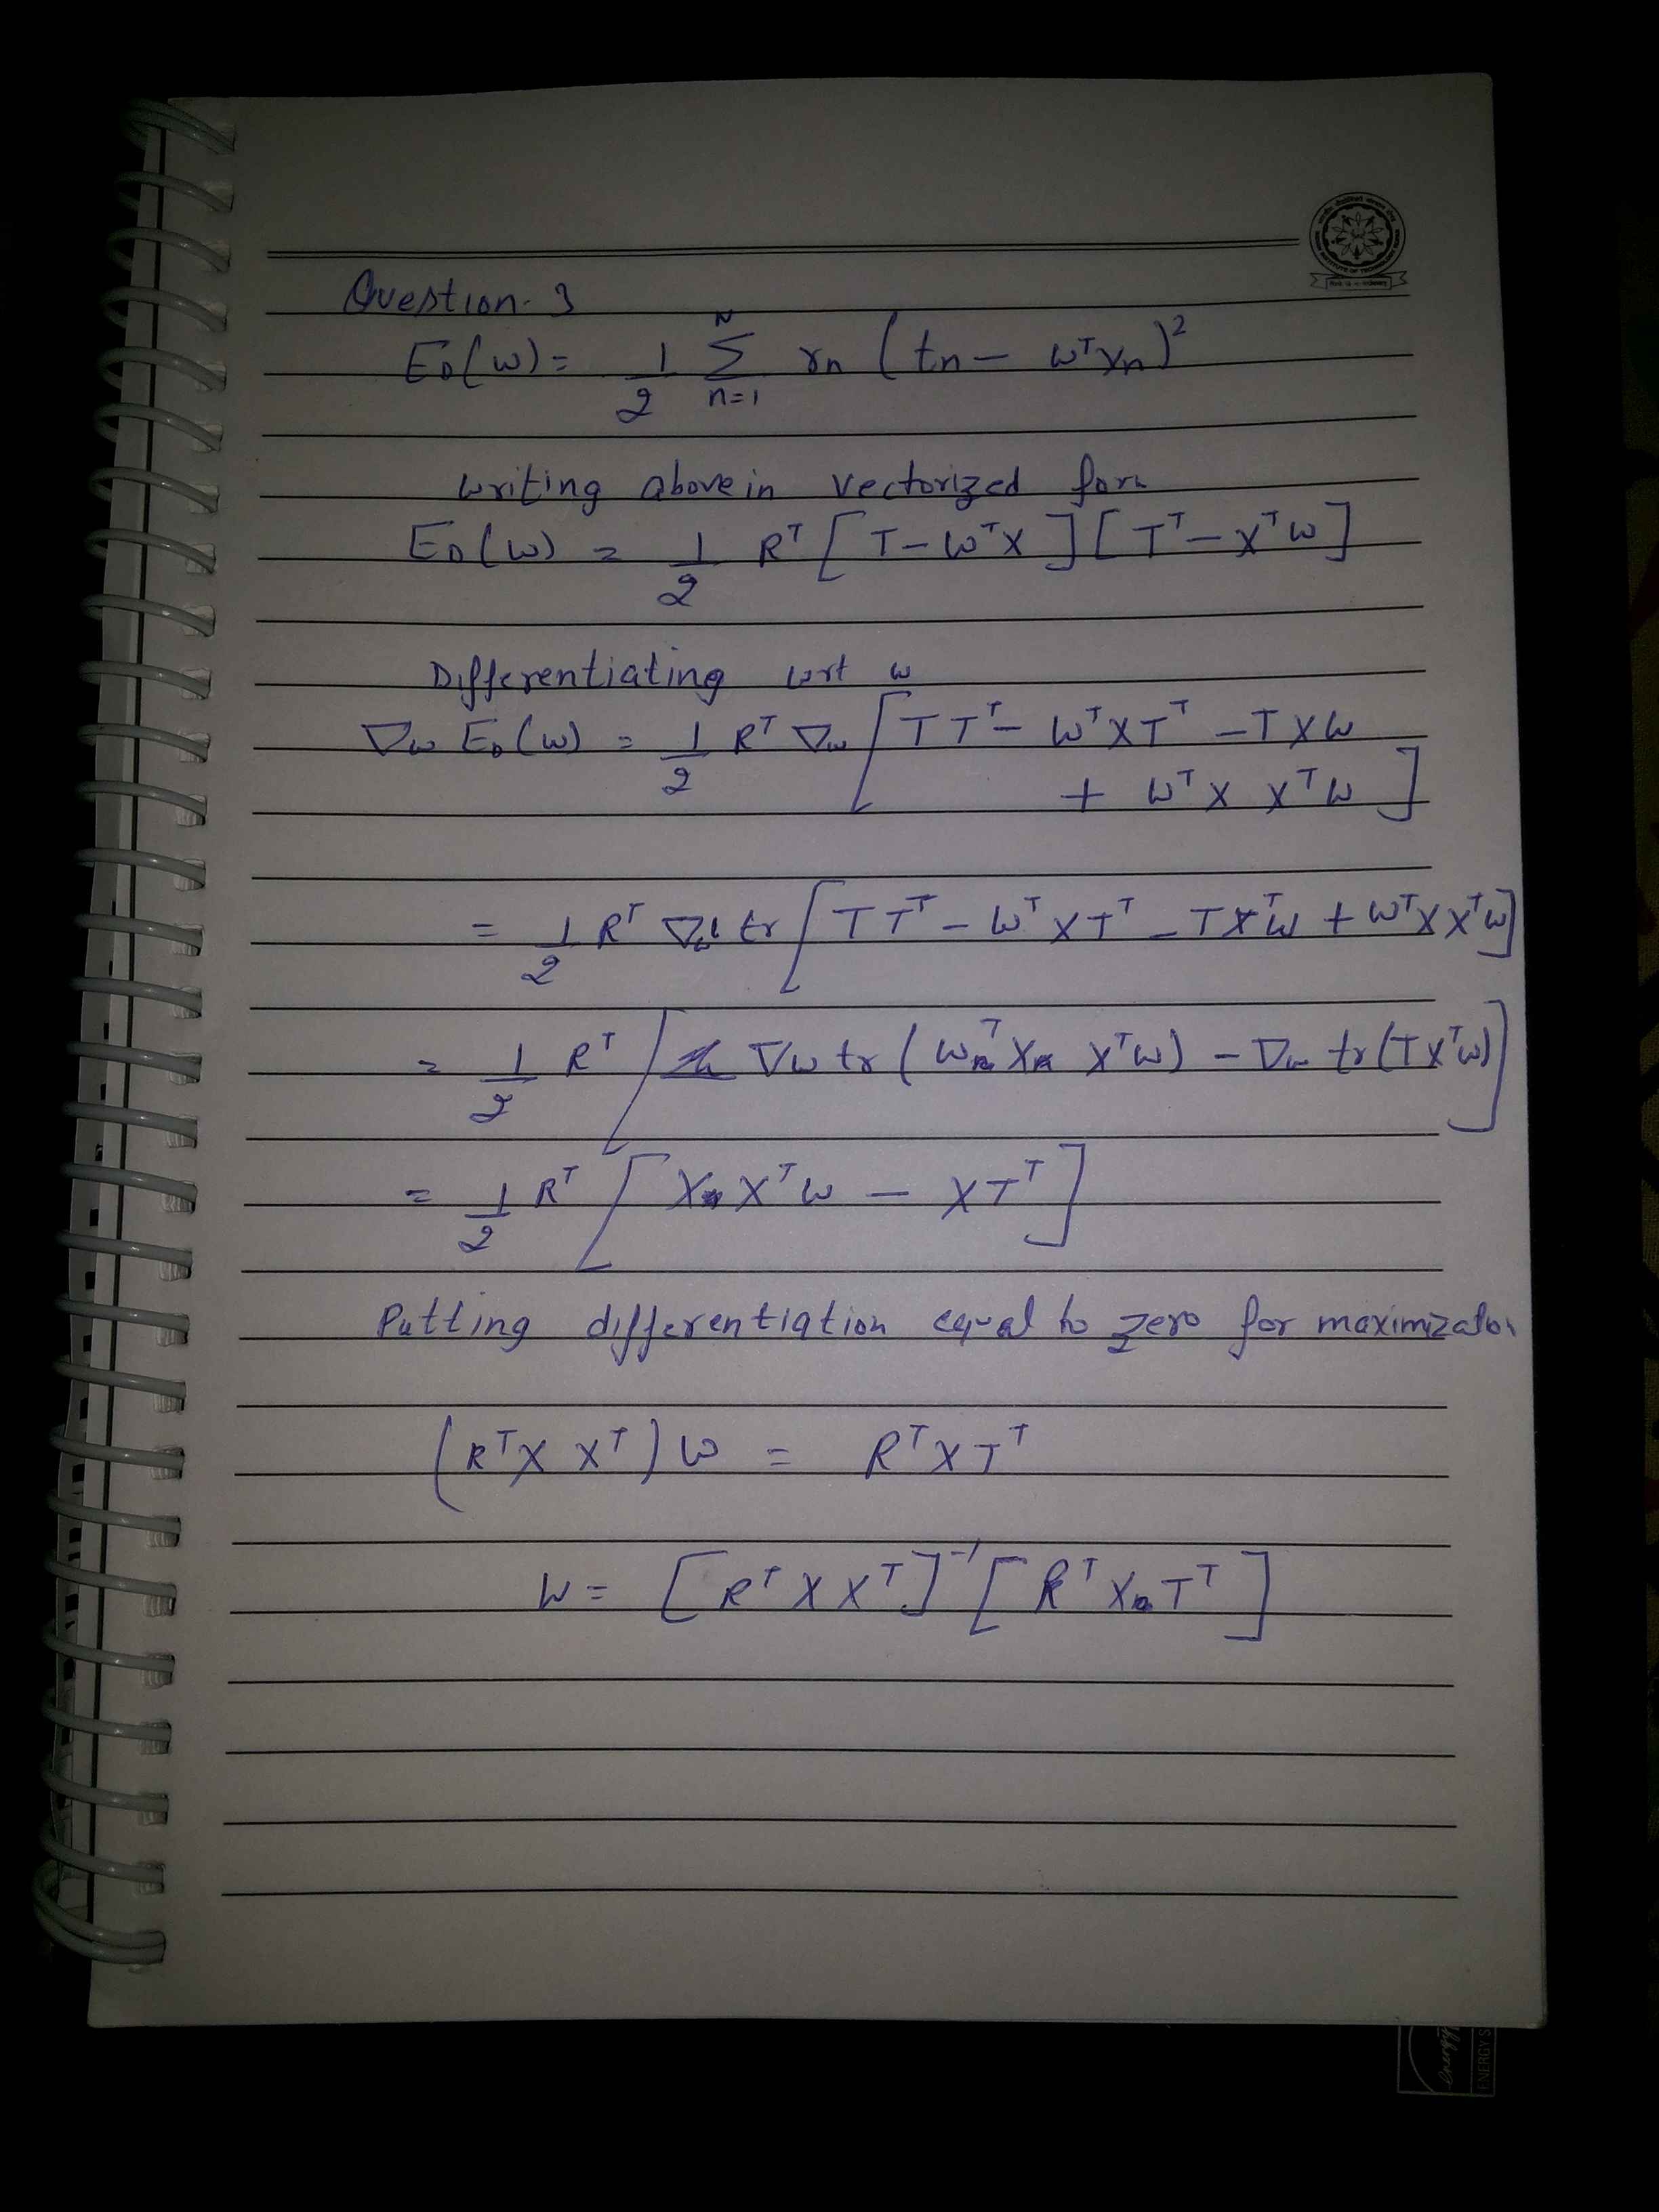 Question-3
E_D(w) = 1/2 Σ_{n=1}^{N} r_n (t_n - w^T x_n)^2
writing above in vectorized form
E_D(w) = 1/2 R^T [T - w^T X] [T^T - X^T w]
Differentiating wrt w
∇_w E_D(w) = 1/2 R^T ∇_w [T T^T - w^T X T^T - T X w
+ w^T X X^T w]
= 1/2 R^T ∇_w tr [T T^T - w^T X T^T - T X^T w + w^T X X^T w]
= 1/2 R^T [∇_w tr(w^T X X^T w) - ∇_w tr(T X^T w)]
= 1/2 R^T [X X^T w - X T^T]
Putting differentiation equal to zero for maximization
(R^T X X^T) w = R^T X T^T
w = [R^T X X^T]^{-1} [R^T X T^T]
ENERGY S